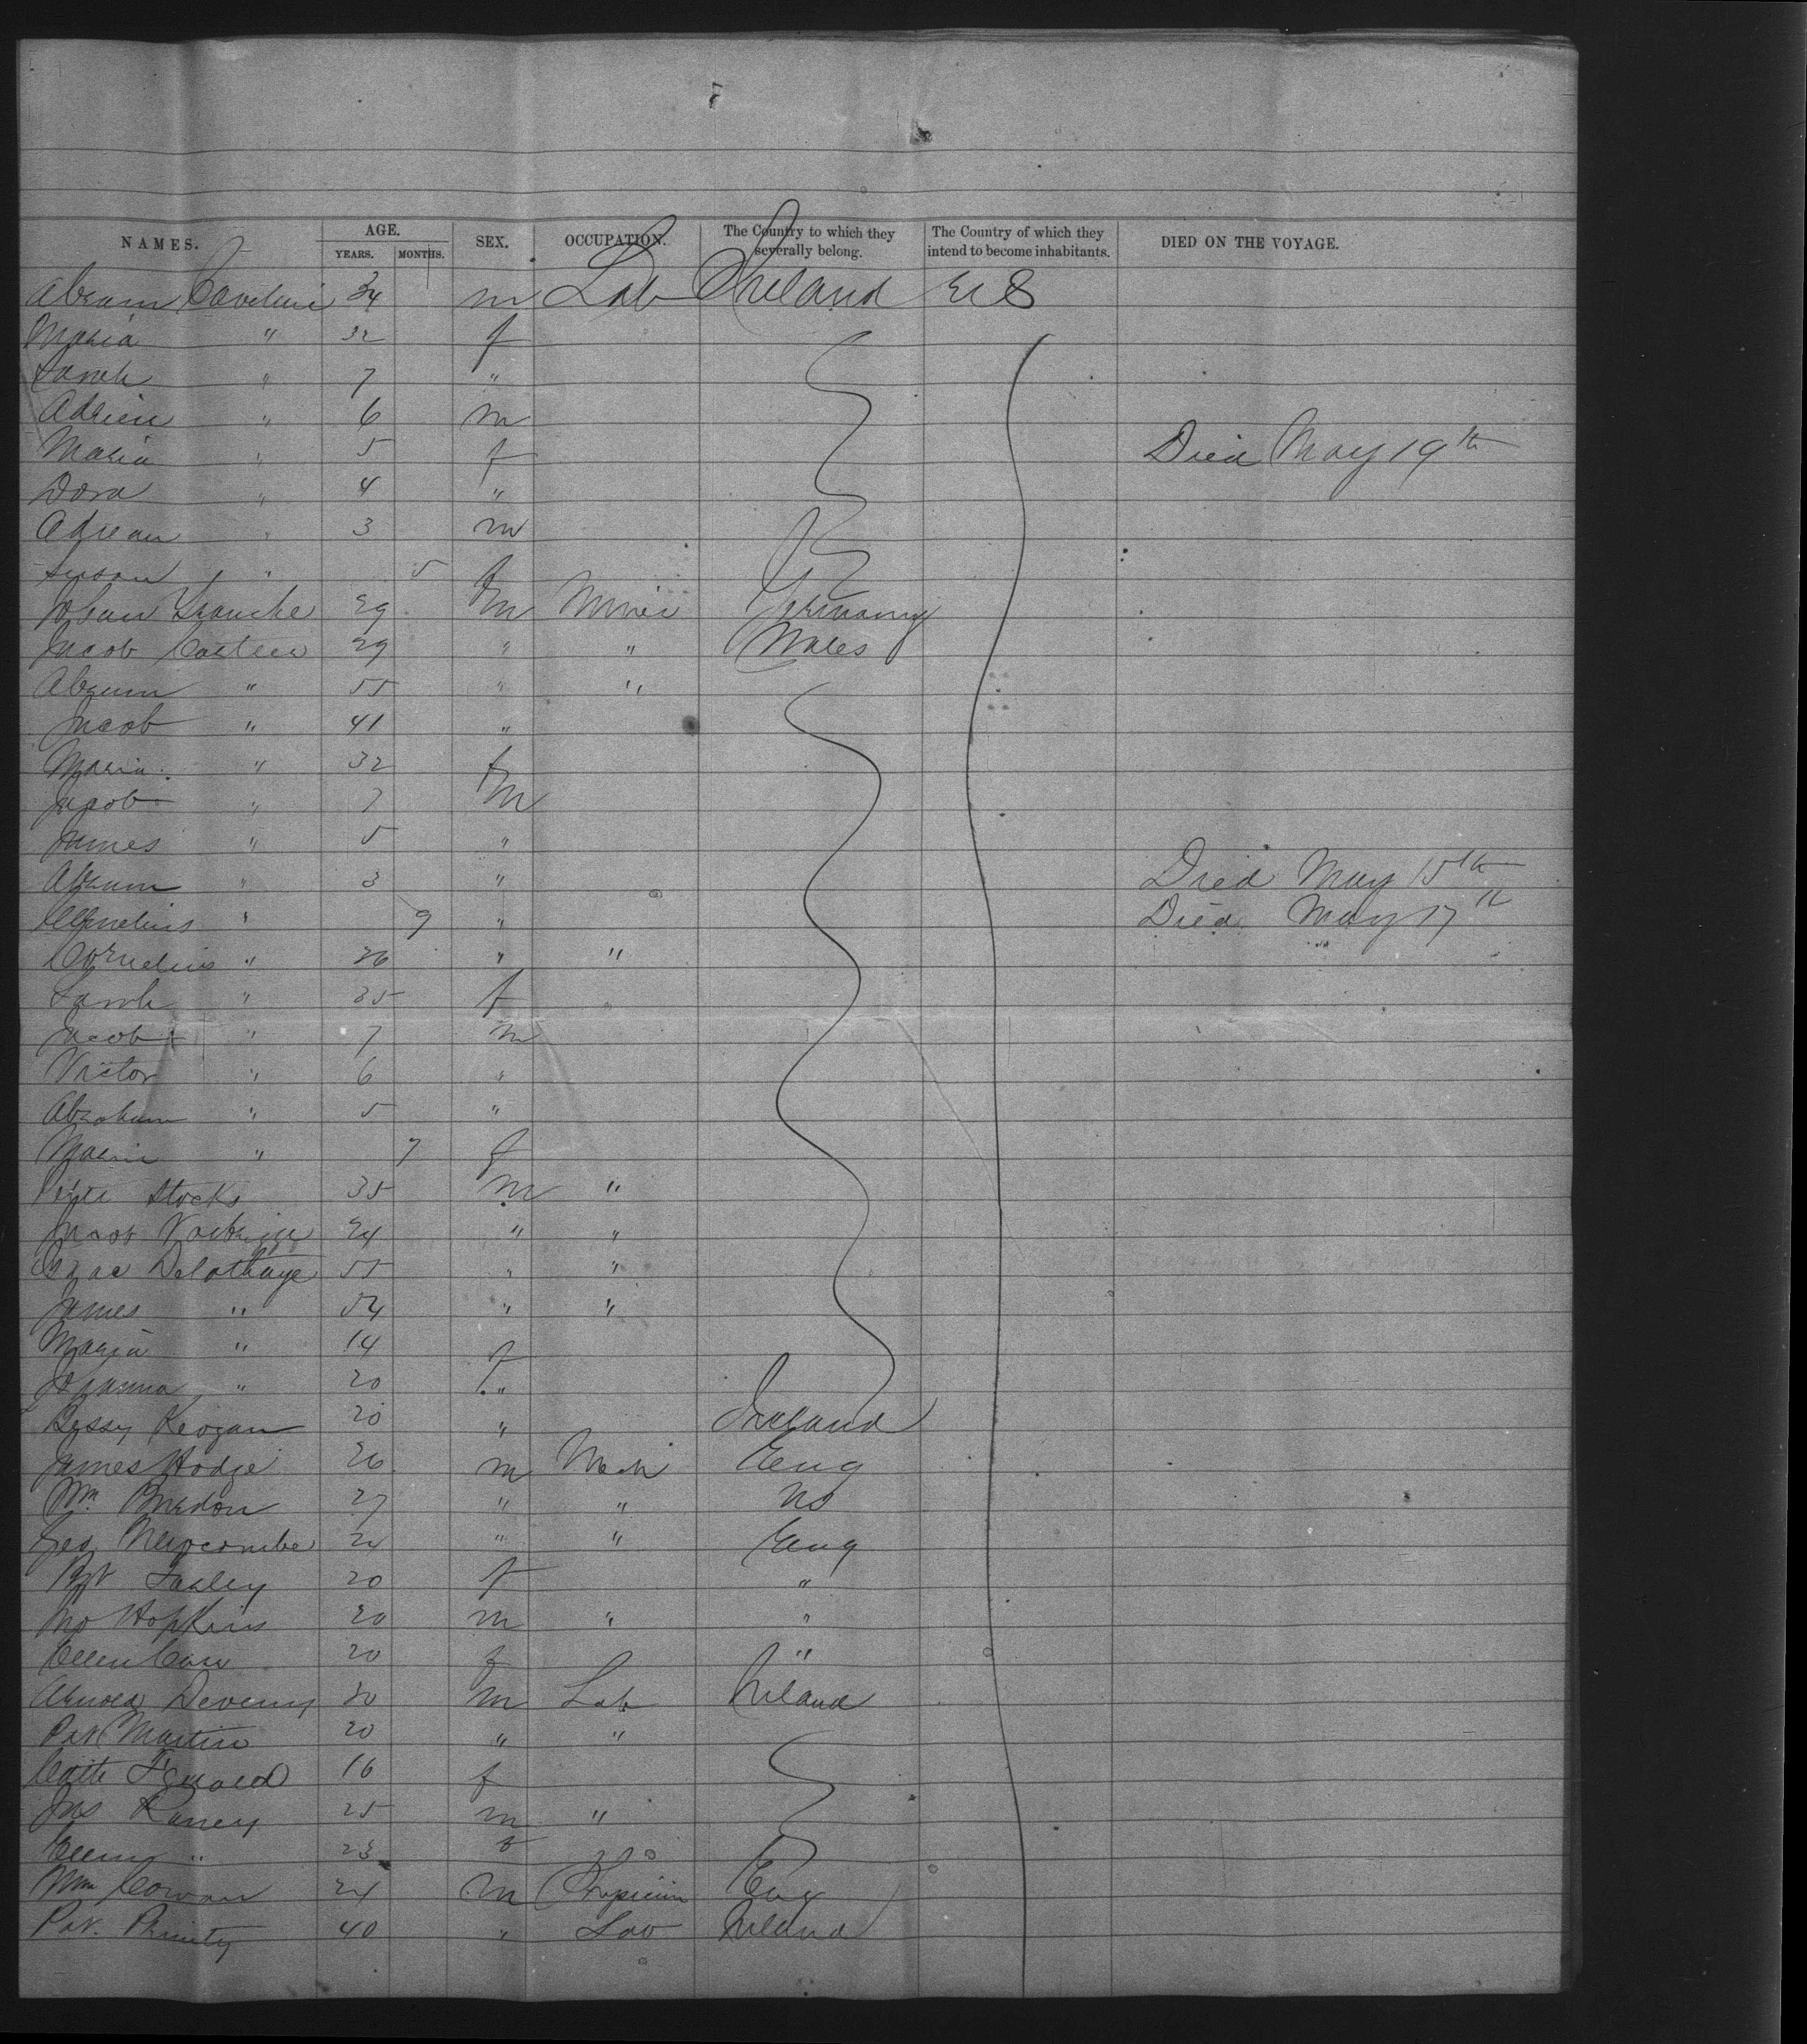 NAMES. AGE. YEARS. MONTHS. SEX. OCCUPATION. The Country to which they severally belong. The Country of which they intend to become inhabitants. DIED ON THE VOYAGE.
Abram 34 m Lab Ireland US
Maria " 32 f
Sarah " 7 "
Adrien " 6 m
Maria " 5 f Died May 19th
Dora " 4 "
Adrean " 3 m
Susan " 5 f
Johan 29 m Miner Germany
Jacob 29 " " Wales
Abram " 55 " "
Jacob " 41 "
Maria " 32 f
Jacob " 7 m
James " 5 "
Abram " 3 " Died May 15th
Cornelius " 9 " Died May 17th
Cornelius " 26 " "
Sarah " 35 f
Jacob " 7 m
Victor " 6 "
Abraham " 5 "
Maria " 7 f
Peter Stocks 35 m "
Jacob 24 " "
Isaac Delathaye 55 " "
James " 54 " "
Maria " 14 f
Johanna " 20 "
Bessy Keogan 20 " Ireland
James Hodge 26 m Mech Eng
Wm 27 " " US
Geo Newcombe 24 " " Eng
20 f "
Jno Hopkins 20 m " "
Ellen 20 f "
Arnold Deveny 30 m Lab Ireland
Pat Martin 20 " "
16 f
Jas Raney 25 m "
Ellen " 23 f
Wm Cowan 24 m Physician Eng
Pat. 40 " Lab Ireland